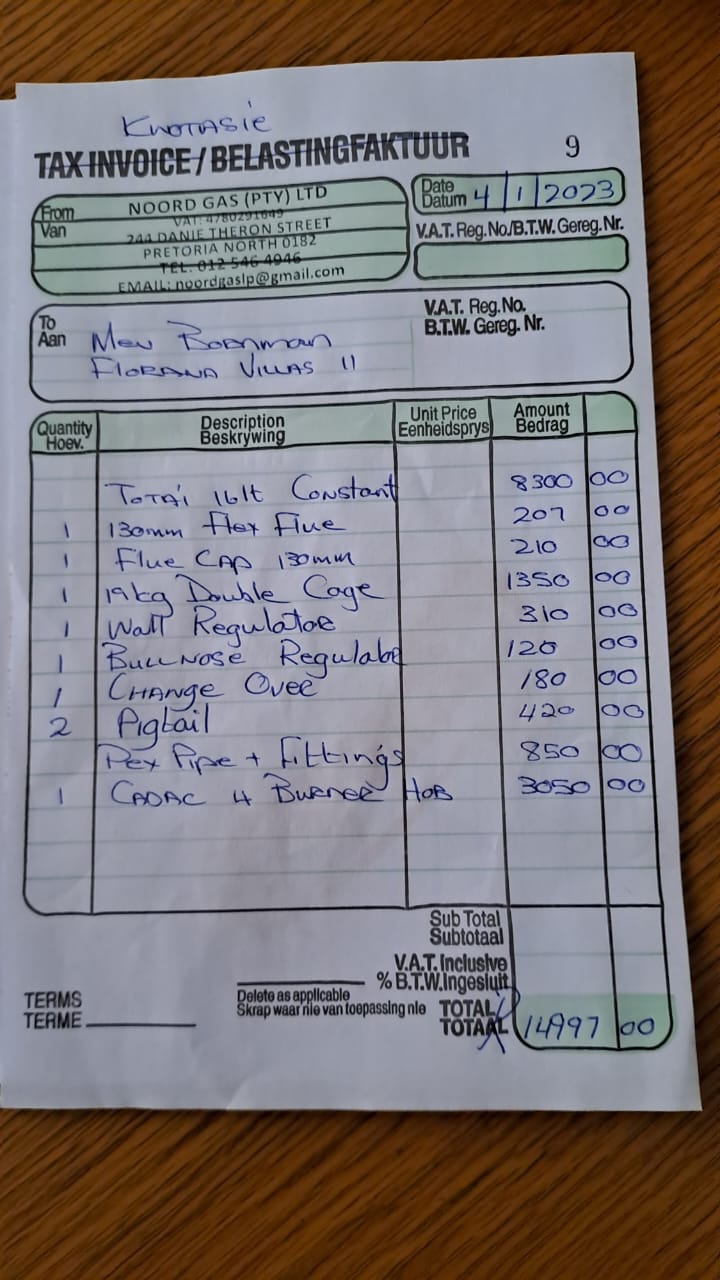 KWOTASIE
TAX INVOICE / BELASTINGFAKTUUR 9
From
Van
NOORD GAS (PTY) LTD
VAT: 4780291649
244 DANIE THERON STREET
PRETORIA NORTH 0182
TEL: 012 546 4946
EMAIL: noordgaslp@gmail.com
Date
Datum 4/1/2023
V.A.T. Reg.No./B.T.W. Gereg.Nr.
To
Aan
Mev Bornman
Florana Villas 11
V.A.T. Reg.No.
B.T.W. Gereg. Nr.
Quantity Description Unit Price Amount
Hoev. Beskrywing Eenheidsprys Bedrag
Totai 16lt Constant 8300 00
1 130mm Flex Flue 207 00
1 Flue Cap 130mm 210 00
1 19kg Double Cage 1350 00
1 Wall Regulator 310 00
1 Bullnose 120 00
1 Change Over 180 00
2 Pigtail 420 00
Pex Pipe + Fittings 850 00
1 CADAC 4 Burner Hob 3050 00
Sub Total
Subtotaal
V.A.T. Inclusive
% B.T.W. Ingesluit
TERMS
TERME
Delete as applicable
Skrap waar nie van toepassing nie
TOTAL
TOTAAL 14997 00